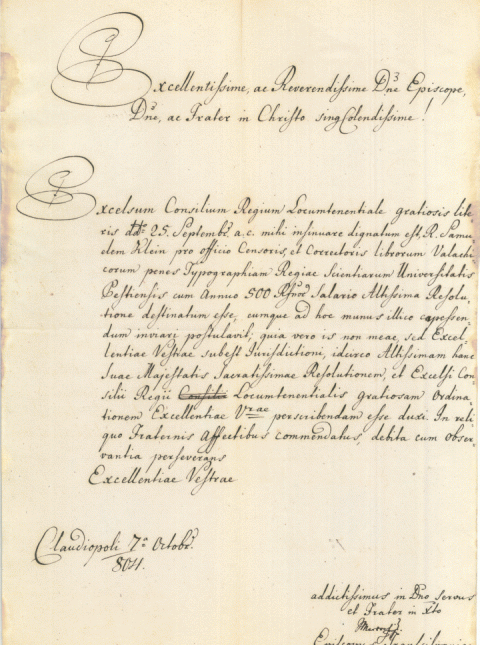 Excellentissime, ac Reverendissime Dne Episcope,
Dne, ac Frater in Christo sing Colendissime!
Excelsum Consilium Regium Locumtenentiale gratiosis lite-
ris ddto 25. Septembr. a.c. mihi insinuare dignatum est, R. Samu-
elem Klein pro officio Censoris, et Correctoris librorum Valachi-
corum penes Typographiam Regiae Scientiarum Universitatis
Pestiensis cum Annuo 500 Rfnor. Salario Altissima Resolu-
tione destinatum esse, eumque ad hoc munus illico capessen-
dum inviari postulavit; quia vero is non meae, sed Excel-
lentiae Vestrae subest Jurisdictioni, idcirco Altissimam hanc
Suae Majestatis Sacratissimae Resolutionem, et Excelsi Con-
silii Regii Consilii Locumtenentialis gratiosam Ordina-
tionem Excellentiae Vrae perscribendam esse duxi. In reli-
quo Fraternis Affectibus commendatus, debita cum obser-
vantia perseverans
Excellentiae Vestrae
Claudiopoli 7a Octobr.
804.
addictissimus in Dno servus
et Frater in Xto
Episcopus Transilvanica